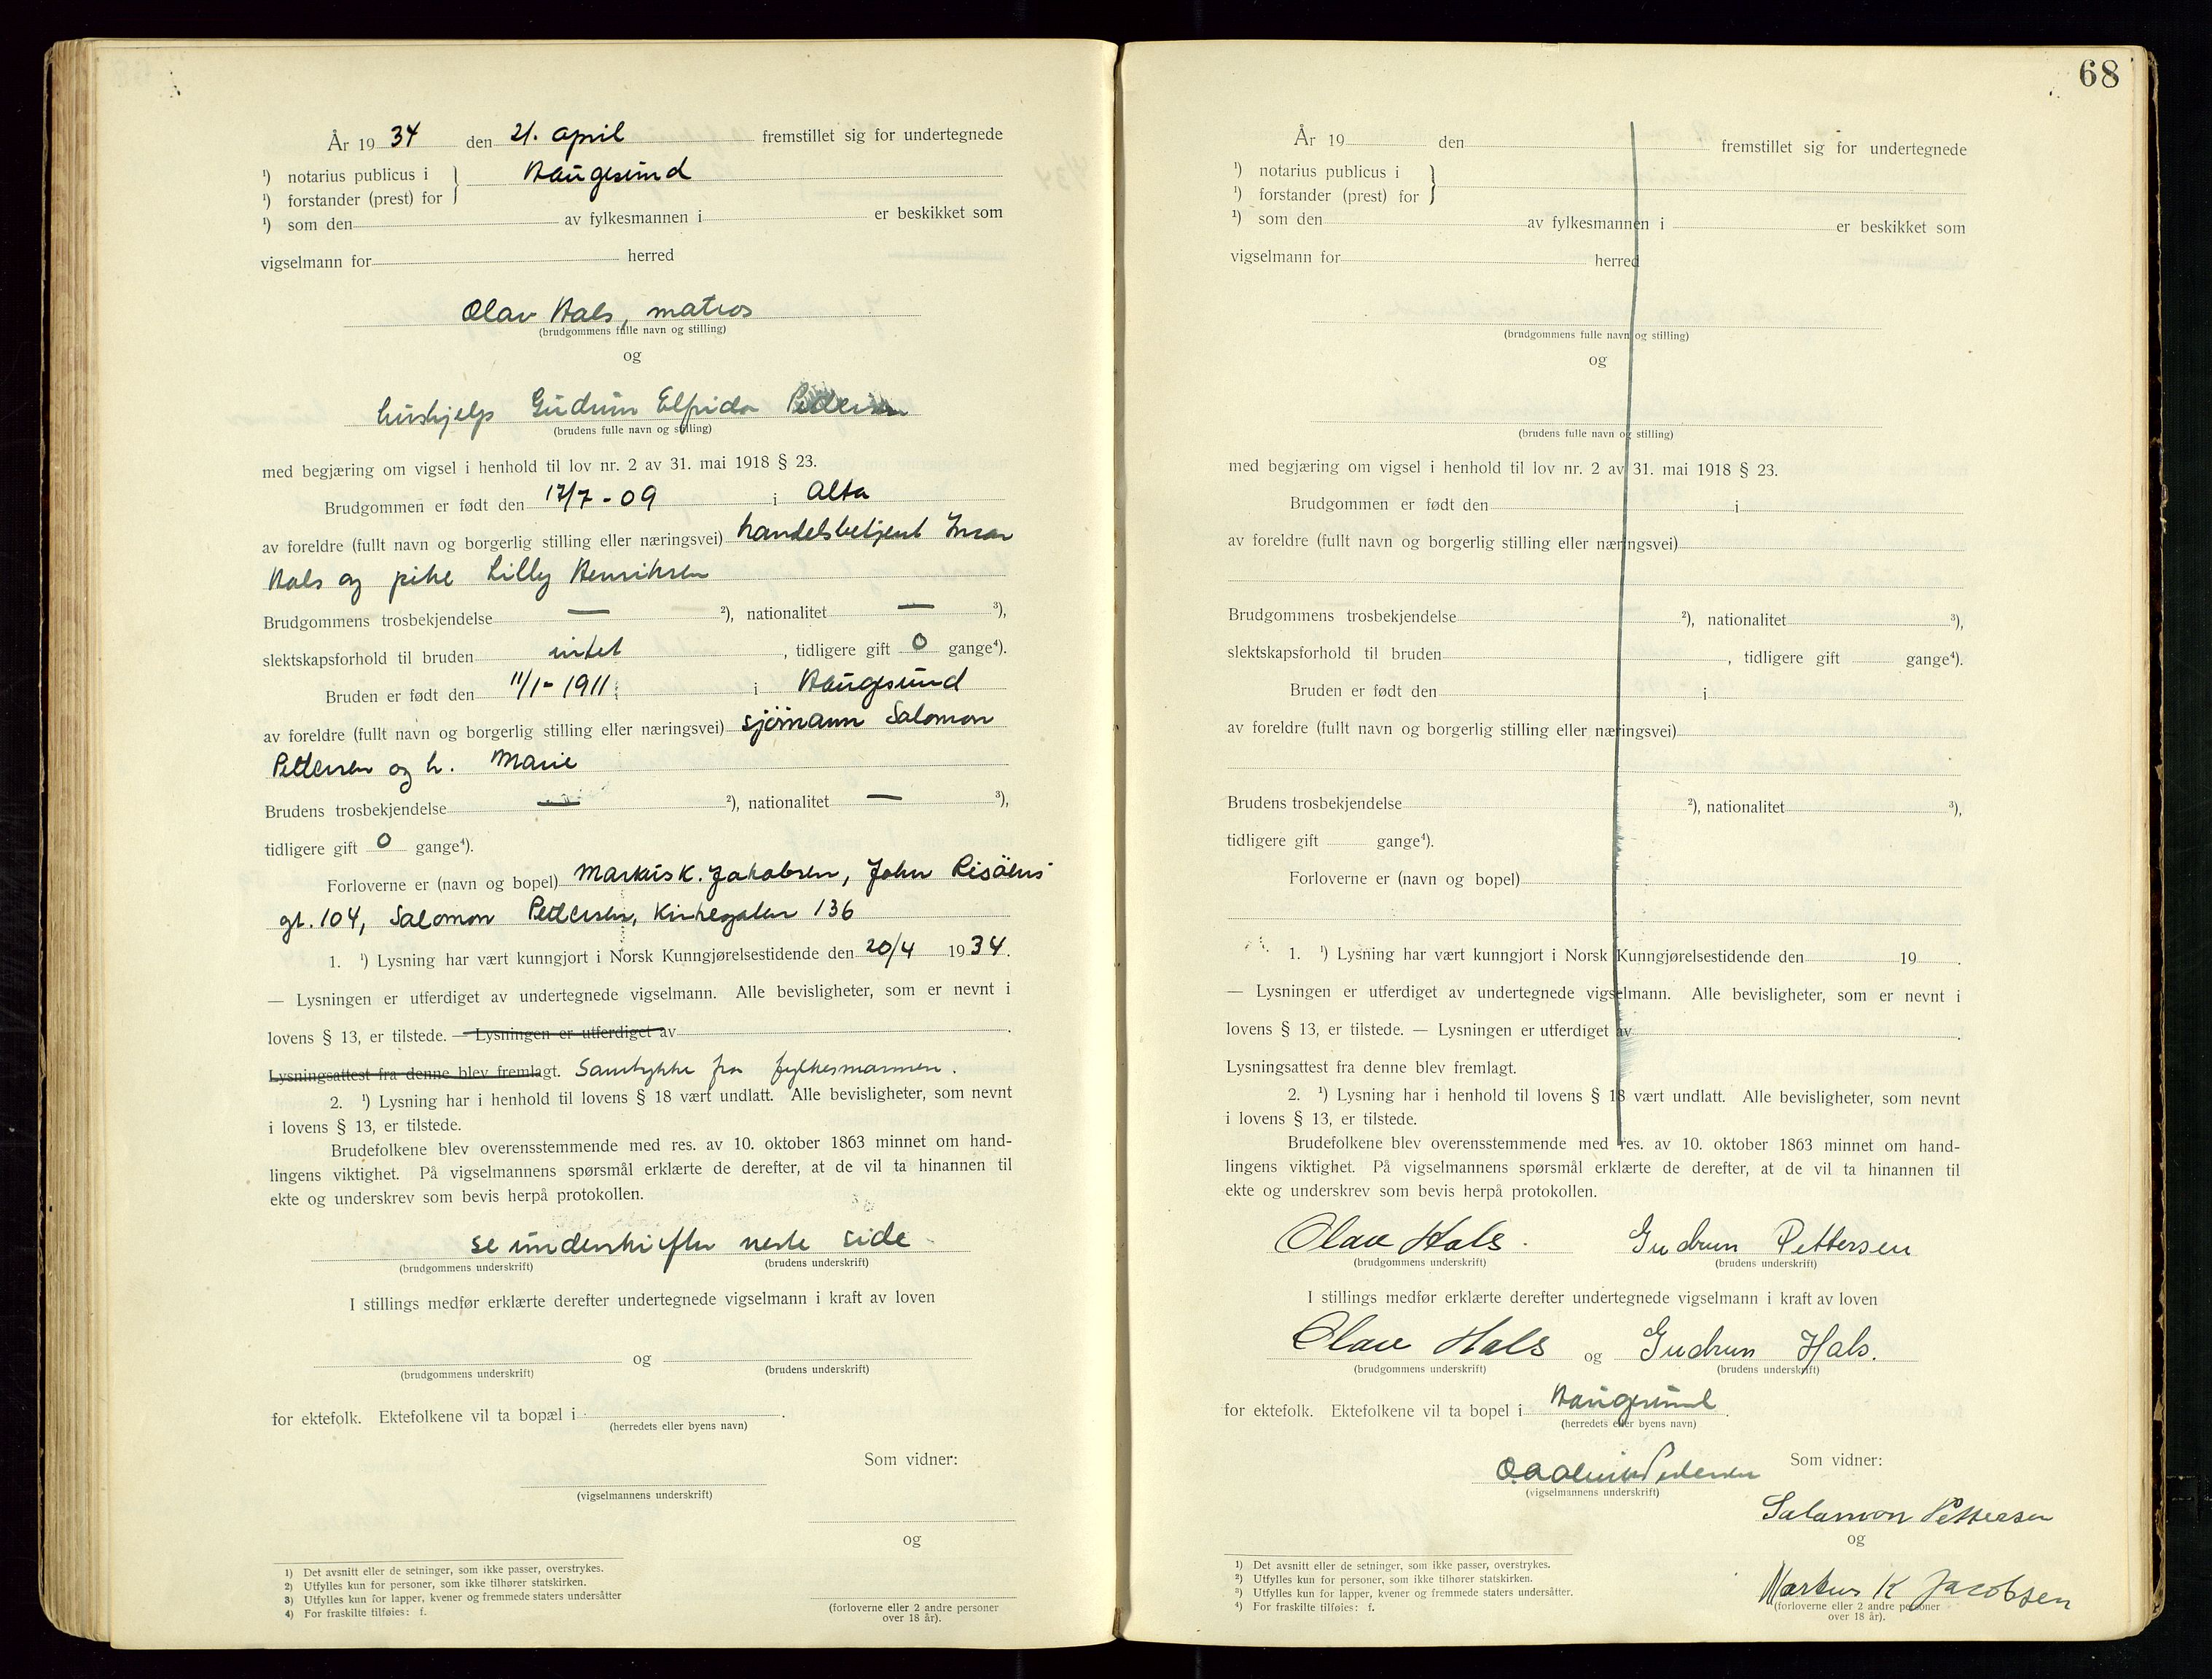 År 19 34 den 21. april fremstillet sig for undertegnede
¹) notarius publicus i } Haugesund
¹) forstander (prest) for
¹) som den av fylkesmannen i er beskikket som
vigselmann for herred
Olav Hals, matros
(brudgommens fulle navn og stilling)
og
hushjelp Gudrun Elfrida Pedersen
(brudens fulle navn og stilling)
med begjæring om vigsel i henhold til lov nr. 2 av 31. mai 1918 § 23.
Brudgommen er født den 17/7 - 09 i Alta
av foreldre (fullt navn og borgerlig stilling eller næringsvei) handelsbetjent
Hals og pike Lilly Henriksen
Brudgommens trosbekjendelse — ²), nationalitet — ³),
slektskapsforhold til bruden intet, tidligere gift 0 gange⁴).
Bruden er født den 11/1 - 1911 i Haugesund
av foreldre (fullt navn og borgerlig stilling eller næringsvei) sjömann Salomon
Pettersen og h. Marie
Brudens trosbekjendelse — ²), nationalitet — ³),
tidligere gift 0 gange⁴).
Forloverne er (navn og bopel) Markus K. Jakobsen, John Risöens
gt. 104, Salomon Pettersen, Kirkegaten 136
1. ¹) Lysning har vært kunngjort i Norsk Kunngjørelsestidende den 20/4 1934.
— Lysningen er utferdiget av undertegnede vigselmann. Alle bevisligheter, som er nevnt i
lovens § 13, er tilstede. — Lysningen er utferdiget av .
Lysningsattest fra denne blev fremlagt. Samtykke fra fylkesmannen.
2. ¹) Lysning har i henhold til lovens § 18 vært undlatt. Alle bevisligheter, som nevnt
i lovens § 13, er tilstede.
Brudefolkene blev overensstemmende med res. av 10. oktober 1863 minnet om hand-
lingens viktighet. På vigselmannens spørsmål erklærte de derefter, at de vil ta hinannen til
ekte og underskrev som bevis herpå protokollen.
se underskrifter neste side
(brudgommens underskrift) (brudens underskrift)
I stillings medfør erklærte derefter undertegnede vigselmann i kraft av loven
og
(brudgommens underskrift) (brudens underskrift)
for ektefolk. Ektefolkene vil ta bopæl i .
(herredets eller byens navn)
Som vidner:
(vigselmannens underskrift)
og
1) Det avsnitt eller de setninger, som ikke passer, overstrykes.
2) Utfylles kun for personer, som ikke tilhører statskirken.
3) Utfylles kun for lapper, kvener og fremmede staters undersåtter
4) For fraskilte tilføies: f.
(forloverne eller 2 andre personer
over 18 år).
68
År 19 den fremstillet sig for undertegnede
¹) notarius publicus i }
¹) forstander (prest) for
¹) som den av fylkesmannen i er beskikket som
vigselmann for herred
(brudgommens fulle navn og stilling)
og
(brudens fulle navn og stilling)
med begjæring om vigsel i henhold til lov nr. 2 av 31. mai 1918 § 23.
Brudgommen er født den i
av foreldre (fullt navn og borgerlig stilling eller næringsvei)
Brudgommens trosbekjendelse ²), nationalitet ³),
slektskapsforhold til bruden , tidligere gift gange⁴).
Bruden er født den i
av foreldre (fullt navn og borgerlig stilling eller næringsvei)
Brudens trosbekjendelse ²), nationalitet ³),
tidligere gift gange⁴).
Forloverne er (navn og bopel)
1. ¹) Lysning har vært kunngjort i Norsk Kunngjørelsestidende den 19 .
— Lysningen er utferdiget av undertegnede vigselmann. Alle bevisligheter, som er nevnt i
lovens § 13, er tilstede. — Lysningen er utferdiget av .
Lysningsattest fra denne blev fremlagt.
2. ¹) Lysning har i henhold til lovens § 18 vært undlatt. Alle bevisligheter, som nevnt
i lovens § 13, er tilstede.
Brudefolkene blev overensstemmende med res. av 10. oktober 1863 minnet om hand-
lingens viktighet. På vigselmannens spørsmål erklærte de derefter, at de vil ta hinannen til
ekte og underskrev som bevis herpå protokollen.
Olav Hals. Gudrun Pettersen
(brudgommens underskrift) (brudens underskrift)
I stillings medfør erklærte derefter undertegnede vigselmann i kraft av loven
Olav Hals og Gudrun Hals.
(brudgommens underskrift) (brudens underskrift)
for ektefolk. Ektefolkene vil ta bopel i Haugesund.
(herredets eller byens navn)
Som vidner:
(vigselmannens underskrift)
Salamon Pettersen
og
Markus K Jacobsen
1) Det avsnitt eller de setninger, som ikke passer, overstrykes.
2) Utfylles kun for personer, som ikke tilhører statskirken.
3) Utfylles kun for lapper, kvener og fremmede staters undersåtter.
4) For fraskilte tilføies: f.
(forloverne eller 2 andre personer
over 18 år).